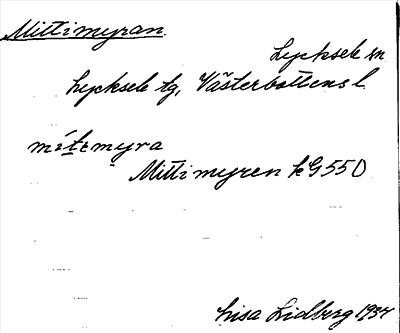 Mittimyran.
Lycksele sn
Lycksele tg, Västerbottens l
mítːɩmyra
Mittimyren kG 55 D
Lisa Lidberg 1934